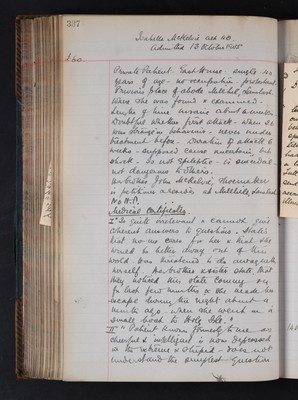 337
Isabella McKelvie aet 40.
Admitted 13 October 1905
Private Patient. East House - single - 40
years of age - no occupation - protestant.
Previous place of abode Millhill, Lamlash
where she was found & examined.
Length of time insane about 6 weeks
Doubtful whether first attack - when
was strange in behaviour - never under
treatment before. Duration of attack 6
weeks - supposed cause
- is not epileptic - is suicidal -
not dangerous to others.
Her brother John McKelvie, Shoemaker
is petitioner & resides at Millhill, Lamlash
No H.P.
Medical Certificates.
I "Is quite irrelevant & cannot give
coherent answers to questions. States
that no one cares for her & that she
would be better away out of this
world & has threatened to do away with
herself. Her brother & sister state that
they noticed this state coming on
for last few months & she made her
escape during the night about a
month ago when she went in a
small boat to Holy Isle."
II "Patient known formerly to me as
cheerful & intelligent is now depressed
in the extreme & stupid - does not
understand the simplest question